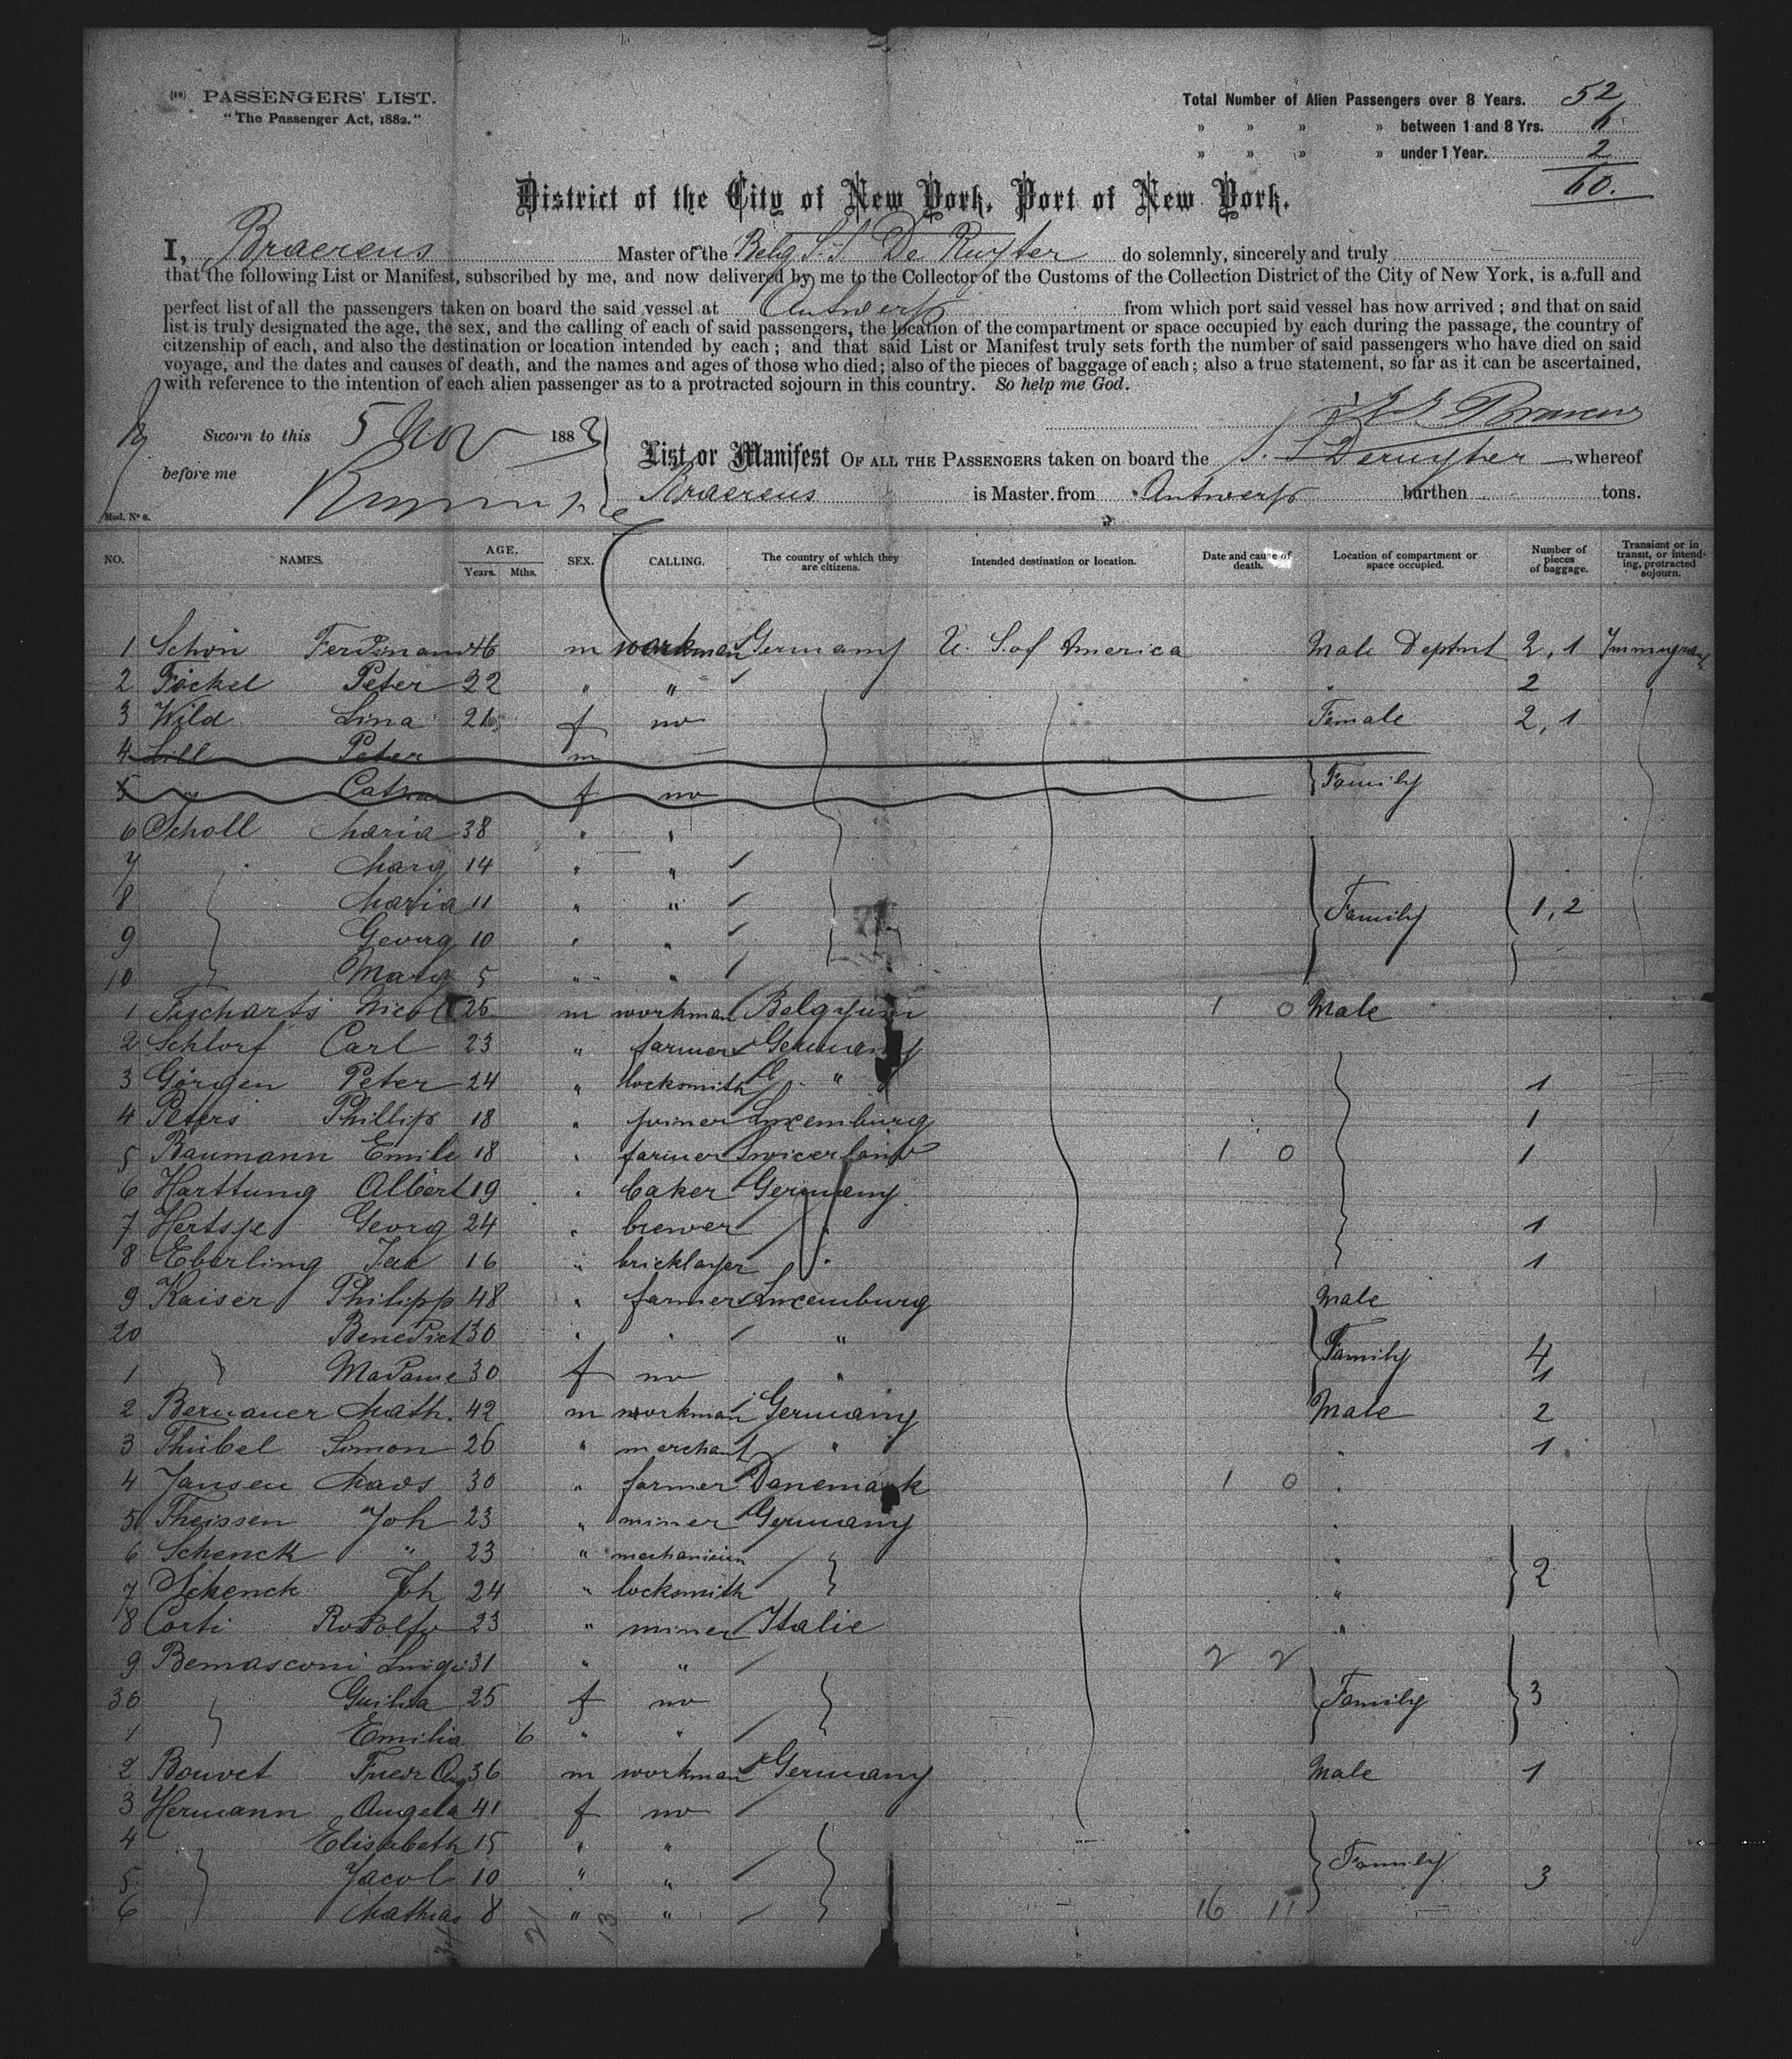 (18) PASSENGERS' LIST.
"The Passenger Act, 1882."
Total Number of Alien Passengers over 8 Years. 52
» » » » between 1 and 8 Yrs. 6
» » » » under 1 Year. 2
60.
District of the City of New York, Port of New York.
I, Braereus Master of the Belg S.S. De Ruyter do solemnly, sincerely and truly
that the following List or Manifest, subscribed by me, and now delivered by me to the Collector of the Customs of the Collection District of the City of New York, is a full and
perfect list of all the passengers taken on board the said vessel at Antwerp from which port said vessel has now arrived; and that on said
list is truly designated the age, the sex, and the calling of each of said passengers, the location of the compartment or space occupied by each during the passage, the country of
citzenship of each, and also the destination or location intended by each; and that said List or Manifest truly sets forth the number of said passengers who have died on said
voyage, and the dates and causes of death, and the names and ages of those who died; also of the pieces of baggage of each; also a true statement, so far as it can be ascertained,
with reference to the intention of each alien passenger as to a protracted sojourn in this country. So help me God.
Sworn to this 5 Nov 1883
before me
List or Manifest OF ALL THE PASSENGERS taken on board the S. S Deruyter whereof
Braereus is Master, from Antwerp burthen tons.
Mod. Nº 8.
NO. NAMES. AGE. Years. Mths. SEX. CALLING. The country of which they are citizens. Intended destination or location. Date and cause of death. Location of compartment or space occupied. Number of pieces of baggage. Transient or in transit, or intending, protracted sojourn.
1 Schön Ferdinand 46 m workman Germany U. S. of America Male Deptmt 2, 1 Immigrant
2 Föckel Peter 22 " " 2
3 Wild Lina 21 f no Female 2, 1
4 Lill Peter m
5 " Cathar f no Family
6 Scholl Maria 38 " "
7 Marg 14 " "
8 Maria 11 " " Family 1, 2
9 Georg 10 " "
10 Marg 5 " "
1 Fischarts Nicol 25 m workman Belgium 1 0 Male
2 Schlorf Carl 23 " farmer Germany
3 Görgen Peter 24 " locksmith " 1
4 Peters Phillip 18 " joiner Luxemburg 1
5 Baumann Emile 18 " farmer Swicerland 1 0 1
6 Harttung Albert 19 " baker Germany
7 Hertsje Georg 24 " brewer " 1
8 Eberling Jac 16 " bricklayer " 1
9 Kaiser Philipp 48 " farmer Luxemburg Male
20 Benedict 30 " " " Family 4
1 Madame 30 f no " 1
2 Bernauer Math. 42 m workman Germany Male 2
3 Thübel Simon 26 " merchant " " 1
4 Jansen Mads 30 " farmer Danemark 1 0 "
5 Theissen Joh 23 " miner Germany "
6 Schenck " 23 " mechanicien " 2
7 Schenck Joh 24 " locksmith "
8 Corti Rodolfo 23 " miner Italie "
9 Bernasconi Luigi 31 " " 2 2
30 Guilia 25 f no Family 3
1 Emilia 6 " "
2 Bouvet Friedr Aug 36 m workman Germany Male 1
3 Hermann Angela 41 f no
4 Elisabeth 15 " "
5 Jacob 10 " " Family 3
6 Mathias 8 " " 16 11